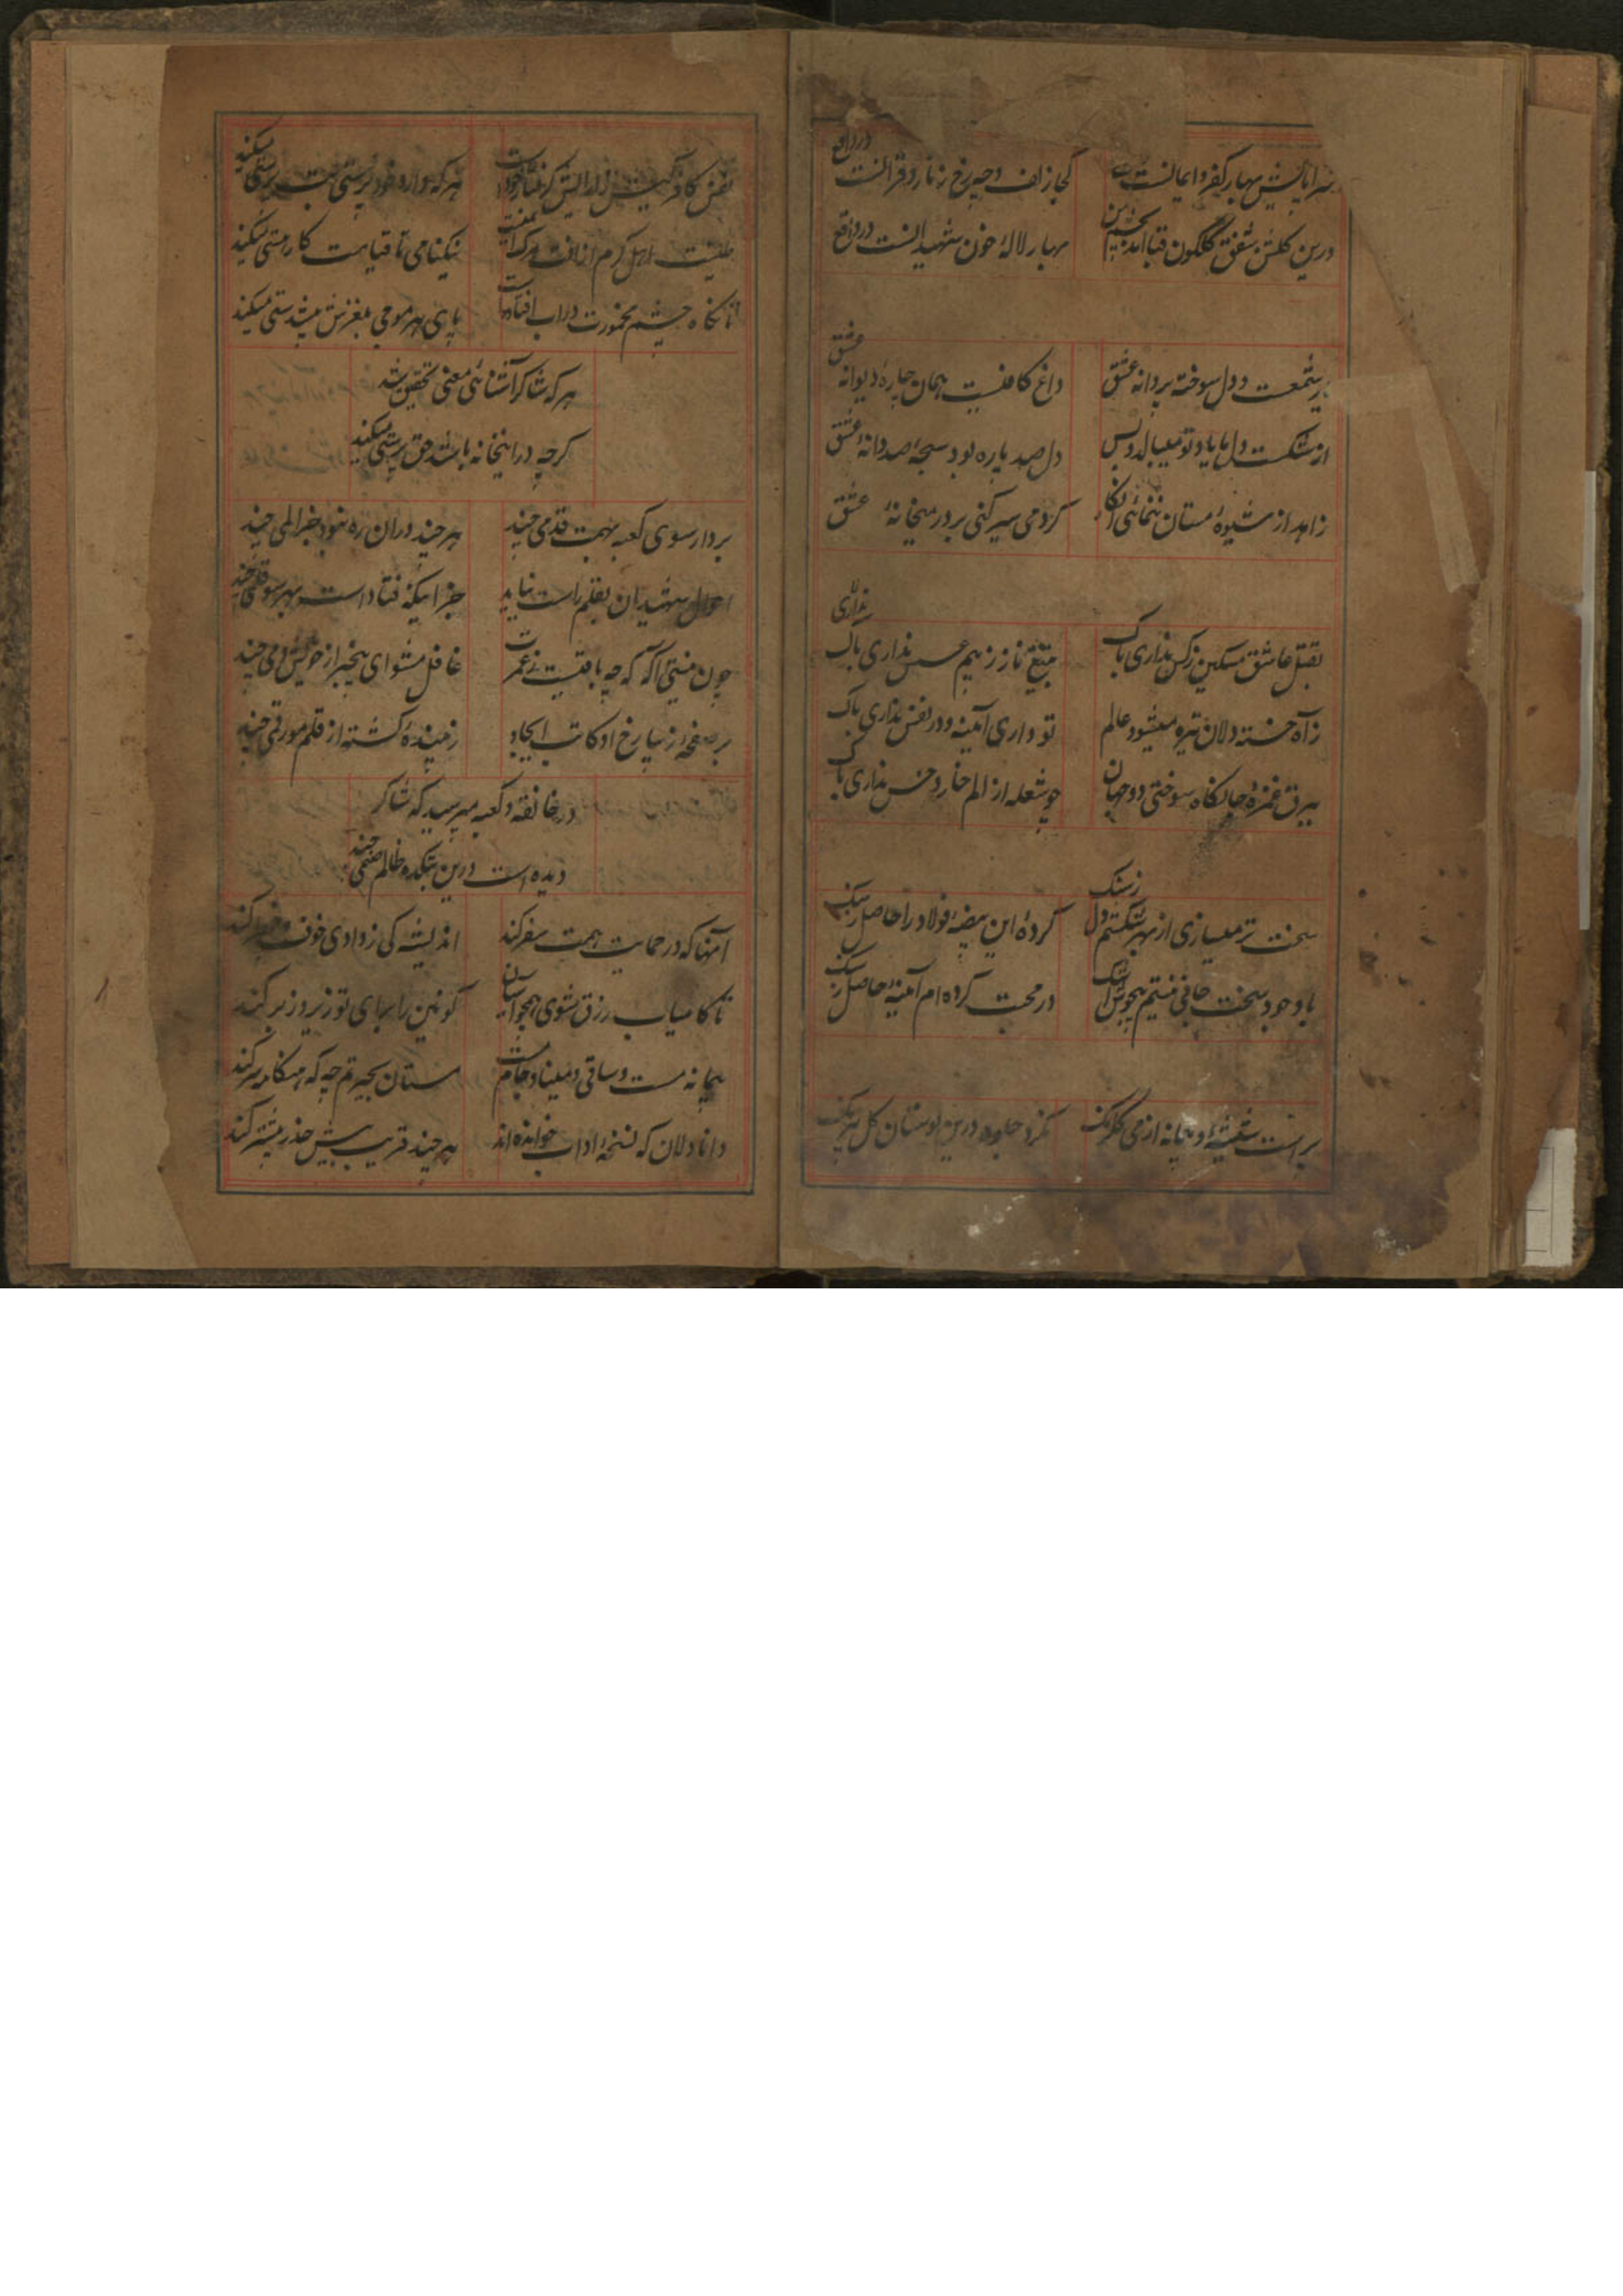 سراپایش بهار کفر و ایمانست
کجا زلف و چه رخ زنار و قرآنست در واقع
درین گلشن شفق گلگون قبا آمد
بهار لالهٔ خون شهیدانست در واقع
شمعست و دل سوخته پروانه عشق
داغ کافیست همان چارهٔ دیوانه عشق
از شکست دل ما یاد تو میبالد و بس
دل صد پاره بود سبحهٔ صد دانهٔ عشق
زاهد از شیوهٔ مستان ننمائی انکار
کر دمی سیر کنی بر در میخانهٔ عشق
بقتل عاشق مسکین ز کس نداری باک
بتیغ ناز ز بیم عسس نداری باک
ز آه خسته دلان تیره میشود عالم
تو داری آئینه و در نفس نداری باک
ببرق غمزهٔ جانکاه سوختی دو جهان
چو شعله از الم خار و خس نداری باک
سخت تر میسازی از بهر شکستم دل ز سنک
کردهٔ این بیضهٔ فولاد را حاصل ز سنک
با وجود سخت جانی نیستم بیجوش اشک
در محبت کرده ام آئینه حاصل ز سنک
شیشه و پیمانه از می گلرنک
جلوه درین بوستان گل
نفس کافر کیش
هر که دارد خود پرستی بت پرستی میکند
طینت اهل کرم از افت
نیکنامی تا قیامت کار هستی میکند
تا نکاه چشم مخمورت در آب افتاده است
پای هر موجی بلغزش مستی میکند
هر که شاکر آشنائی معنی تحقیق شد
کرچه در بتخانه باشد حق پرستی میکند
بردار سوی کعبه بهمت قدمی چند
هر چند در آن ره نبود جز المی چند
احوال شهیدان بقلم راست نیاید
جز اینکه فتاد است بهر سو قلمی چند
چون نیستی آکه که چه باقیست ز عمرت
غافل مشو ای بیخبر از خویش دمی چند
بر صفحهٔ زیبا رخ او کاتب ایجاد
زیبنده کشته از قلم مو رقمی چند
در خانقه و کعبه مپرسید که شاکر
دیده است درین بتکده ظالم صنمی چند
آنها که در حمایت همت سفر کنند
اندیشه کی ز وادی خوف و خطر کنند
تا کامیاب رزق شوی همچو آسیا
کونین را برای تو زیر و زبر کنند
پیمانه مست و ساقی و مینا و جام مست
مستان بحیرتم چه که هنکامه سر کنند
دانا دلان که نسخهٔ آداب خوانده اند
هر چند قرب بیش حذر بیشتر کنند